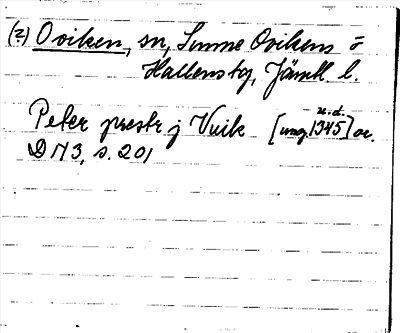 (2) Oviken, sn, Sunne Oviken o
Hallens tg, Jämtl. l.
u.d.
Peter prestr j Vuik [omg. 1345] or.
DN 3, s. 201